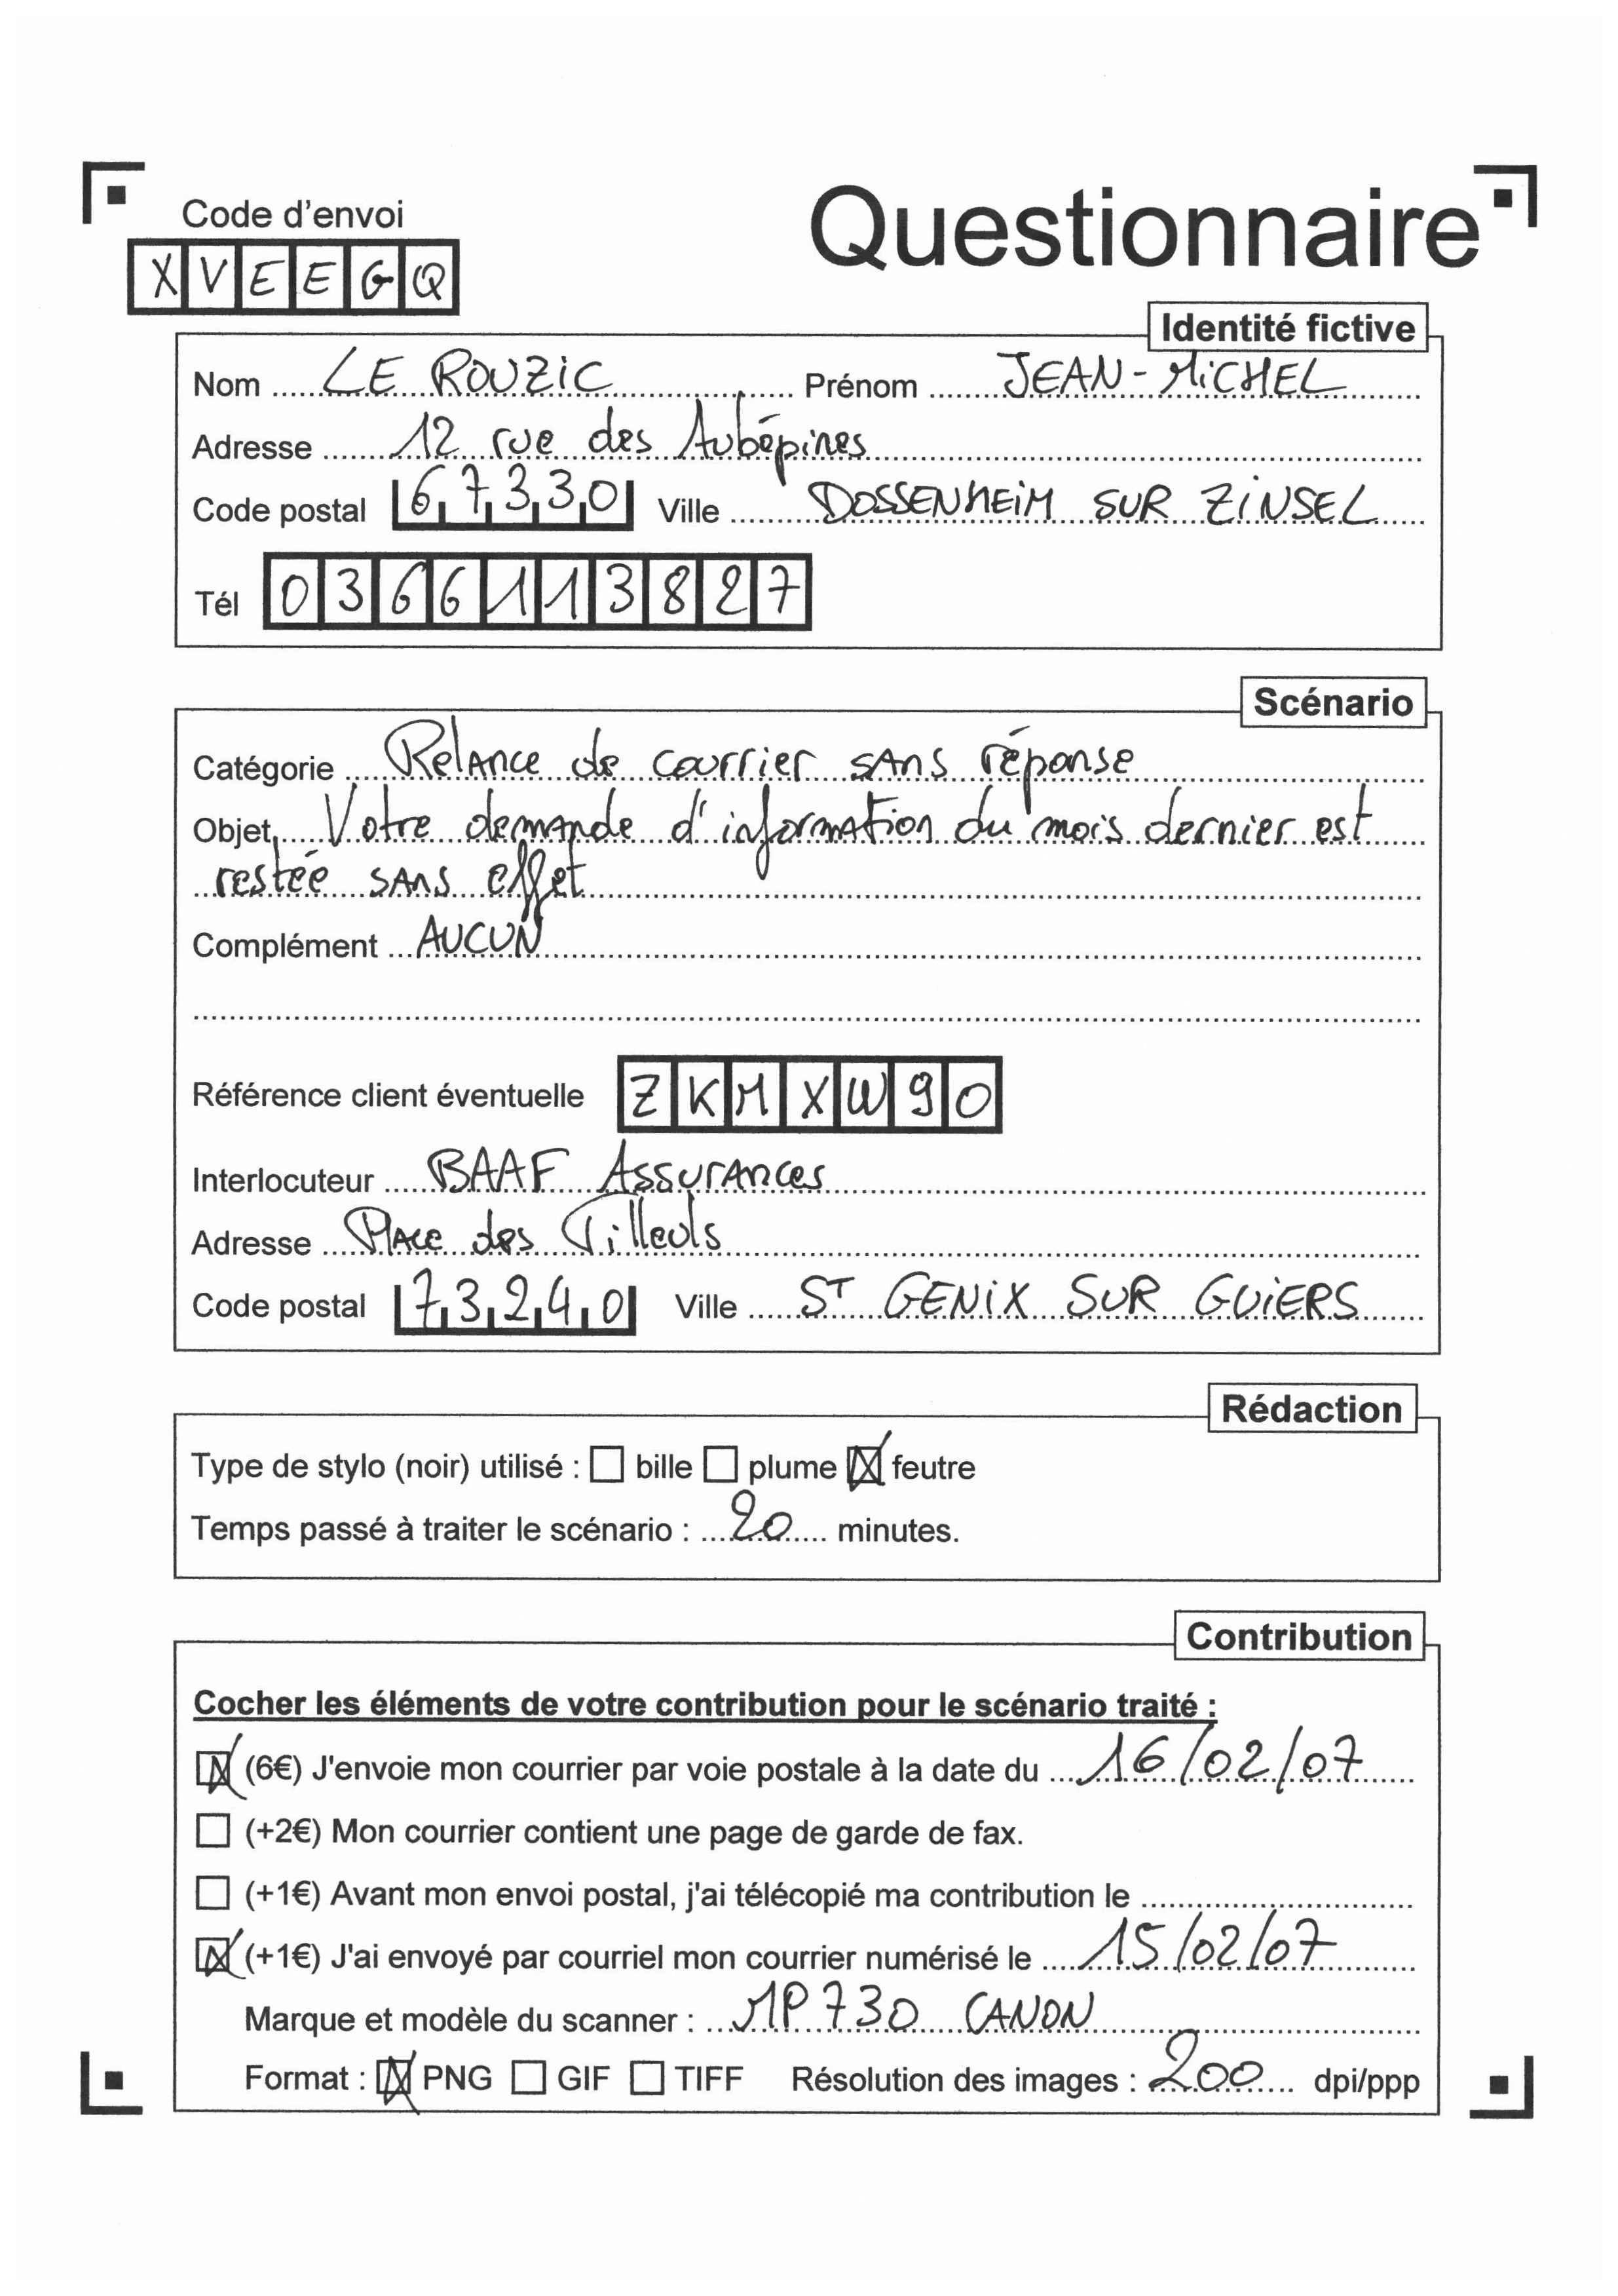 Code d'envoi
XVEEGQ
Questionnaire
Identité fictive
Nom LE ROUZIC Prénom JEAN-MICHEL
Adresse 12 rue des Aubépines
Code postal 67330 Ville DOSSENHEIM SUR ZINSEL
Tél 0366113827
Scénario
Catégorie Relance de courrier sans réponse
Objet Votre demande d'information du mois dernier est
restée sans effet
Complément AUCUN
Référence client éventuelle ZKMXW90
Interlocuteur BAAF Assurances
Adresse Place des Tilleuls
Code postal 73240 Ville ST GENIX SUR GUIERS
Rédaction
Type de stylo (noir) utilisé : ☐ bille ☐ plume ☒ feutre
Temps passé à traiter le scénario : 20 minutes.
Contribution
Cocher les éléments de votre contribution pour le scénario traité :
☒ (6€) J'envoie mon courrier par voie postale à la date du 16/02/07
☐ (+2€) Mon courrier contient une page de garde de fax.
☐ (+1€) Avant mon envoi postal, j'ai télécopié ma contribution le
☒ (+1€) J'ai envoyé par courriel mon courrier numérisé le 15/02/07
Marque et modèle du scanner : MP730 CANON
Format : ☒ PNG ☐ GIF ☐ TIFF Résolution des images : 200 dpi/ppp